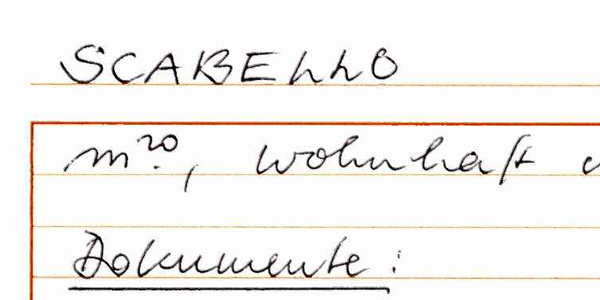 SCABELLO
m²⁰, wohnhaft
Dokumente: